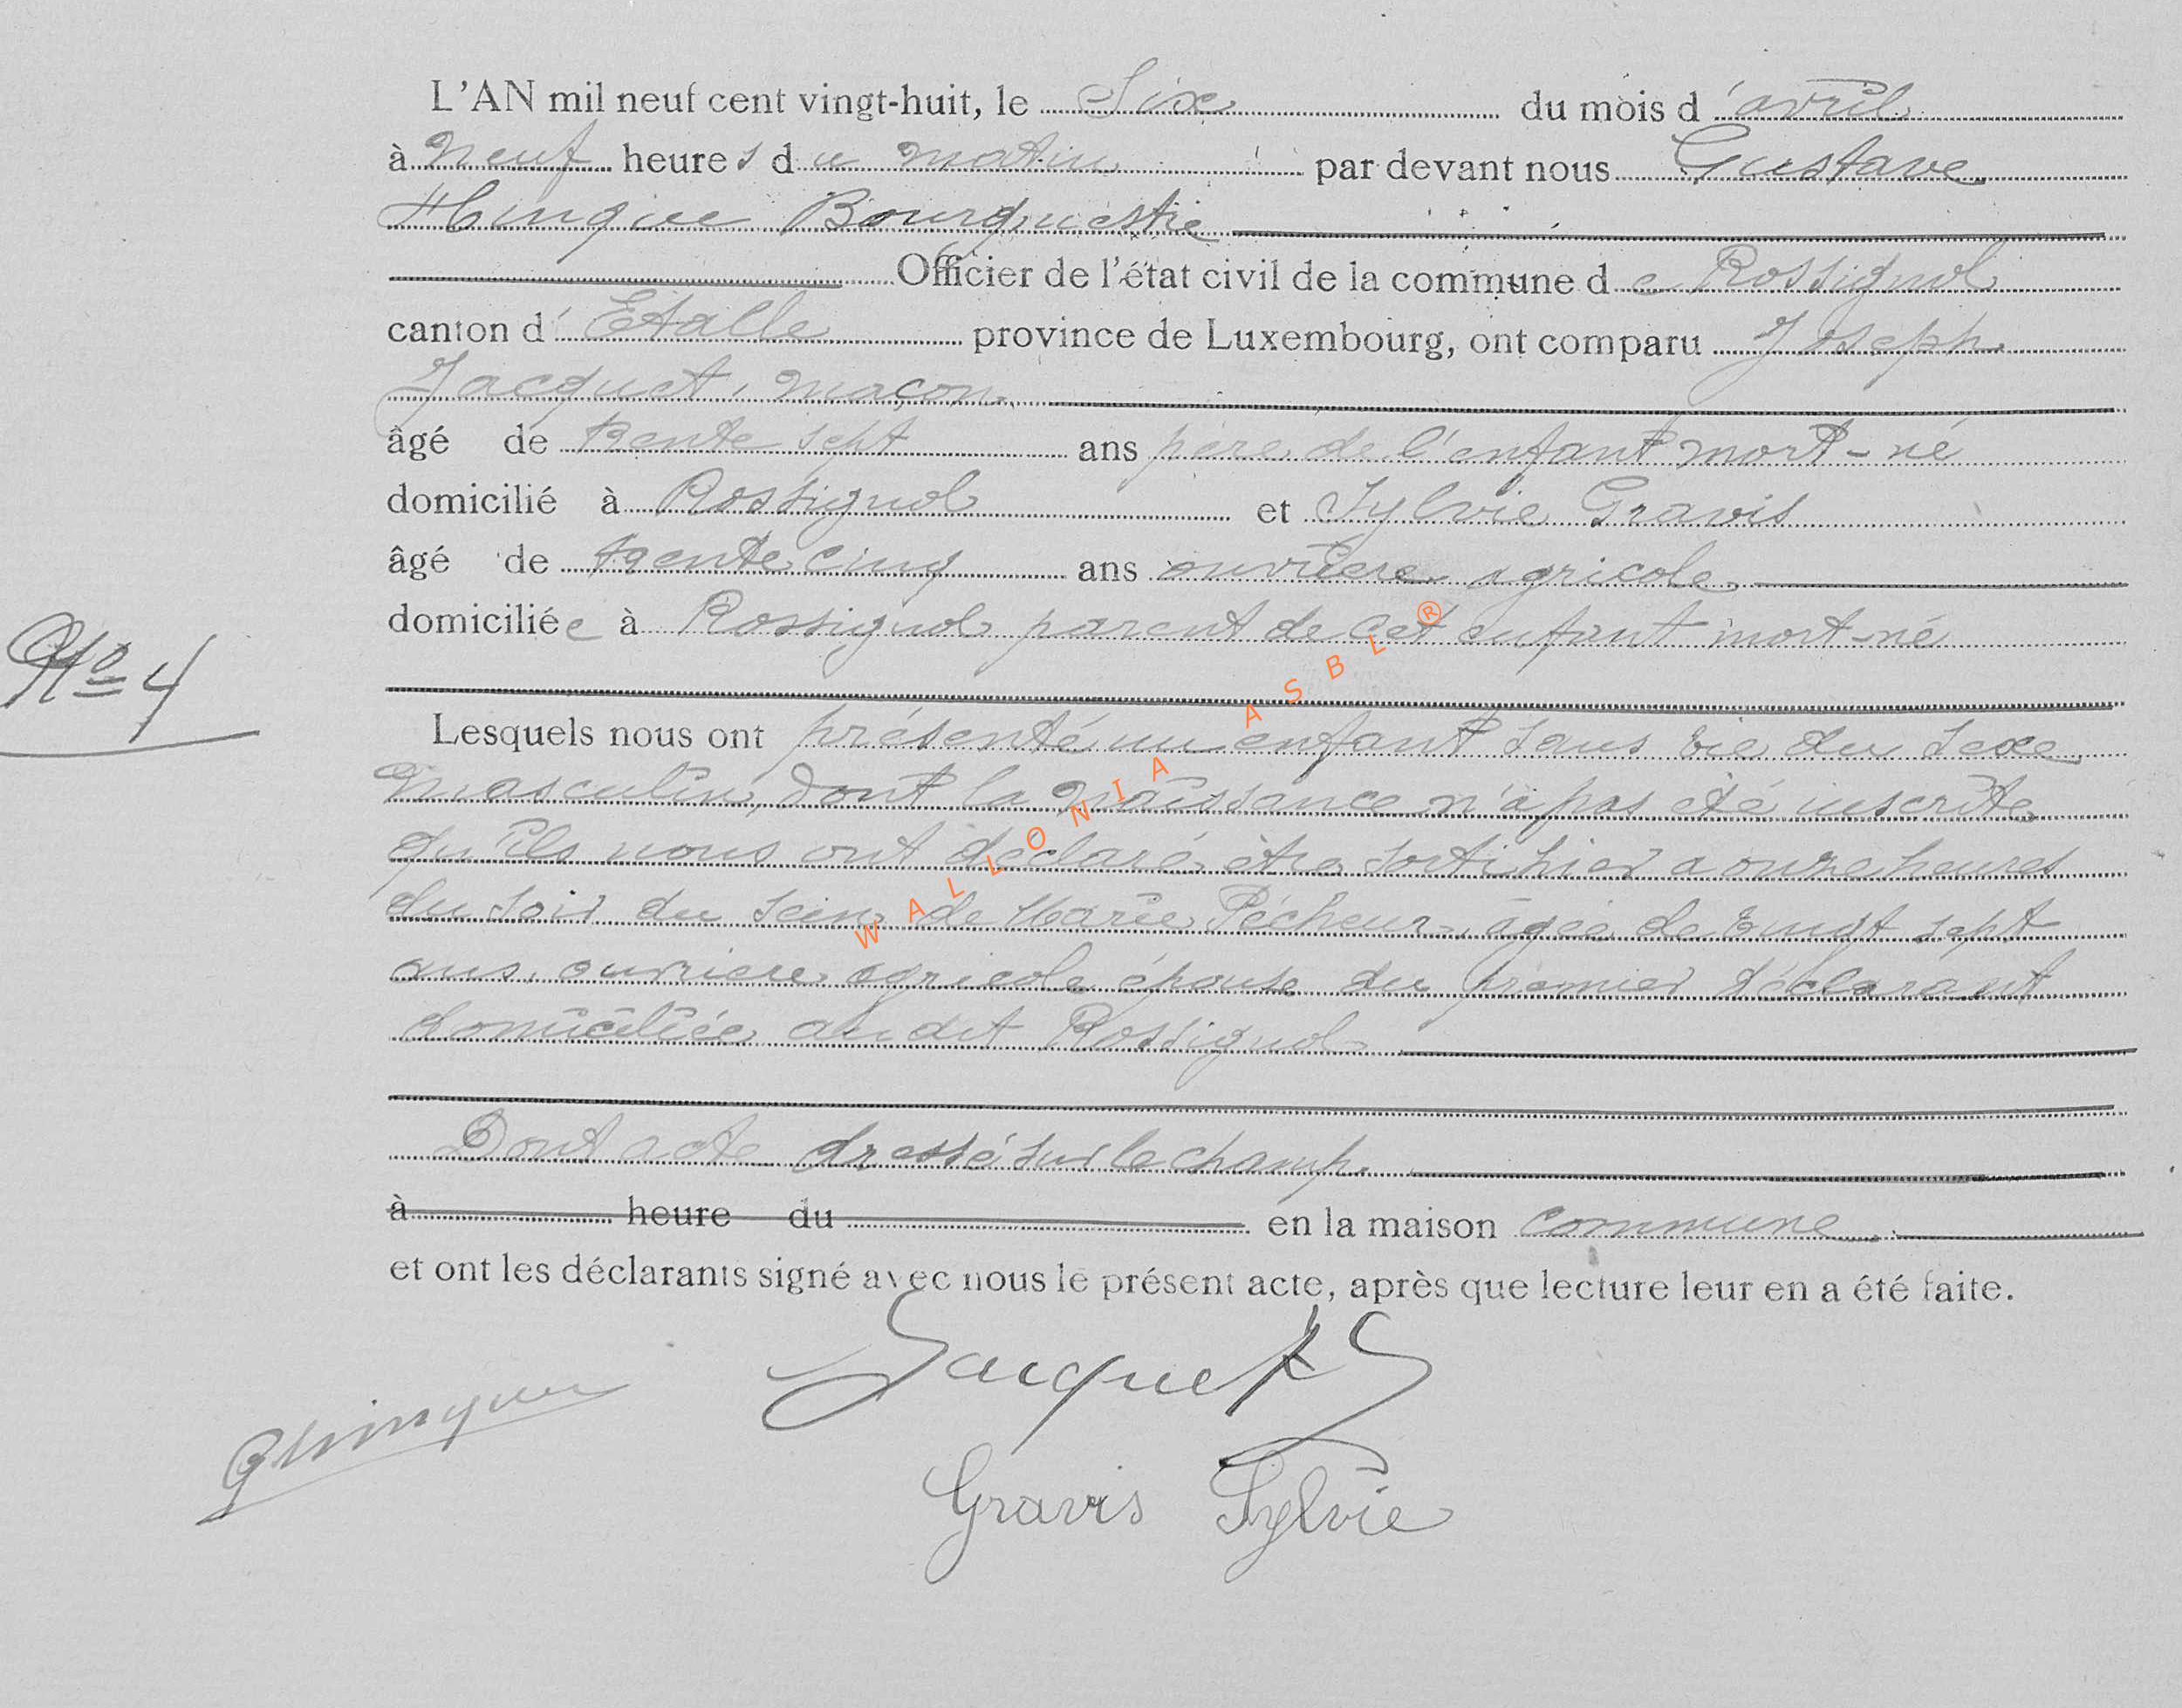 L'AN mil neuf cent vingt-huit, le Six du mois d'avril
à neuf heures du matin par devant nous Gustave
Hinque Bourguestie
Officier de l'état civil de la commune de Rossignol
canton d'Etalle province de Luxembourg, ont comparu Joseph
Jacquet, maçon
âgé de trente sept ans père de l'enfant mort-né
domicilié à Rossignol et Sylvie Gravis
âgé de trente cinq ans ouvrière agricole
domiciliée à Rossignol parent de cet enfant mort-né
No 4
Lesquels nous ont présenté un enfant sans vie du sexe
masculin, dont la naissance n'a pas été inscrite
qu'ils nous ont déclaré être sorti hier a onze heures
du soir du sein de Marie Pécheur, agée de vingt sept
ans, ouvriere agricole épouse du premier déclarant
domiciliée au dit Rossignol
Dont acte dressé sur le champ.
à heure du en la maison commune
et ont les déclarants signé avec nous le présent acte, après que lecture leur en a été faite.
Jacquet J
Ghinque
Gravis Sylvie
WALLONIA ASBL ®